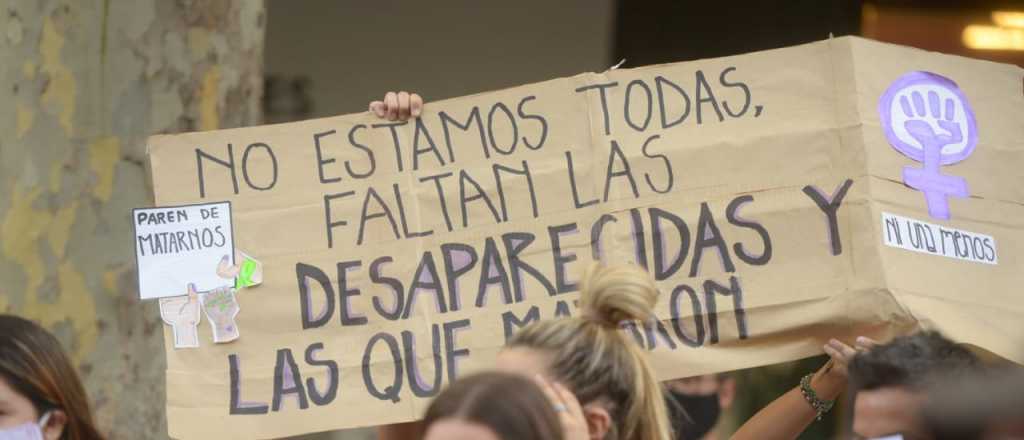 NO ESTAMOS TODAS,
FALTAN LAS
DESAPARECIDAS Y
LAS QUE MATARON
PAREN DE
MATARNOS
Ni UNA MENOS